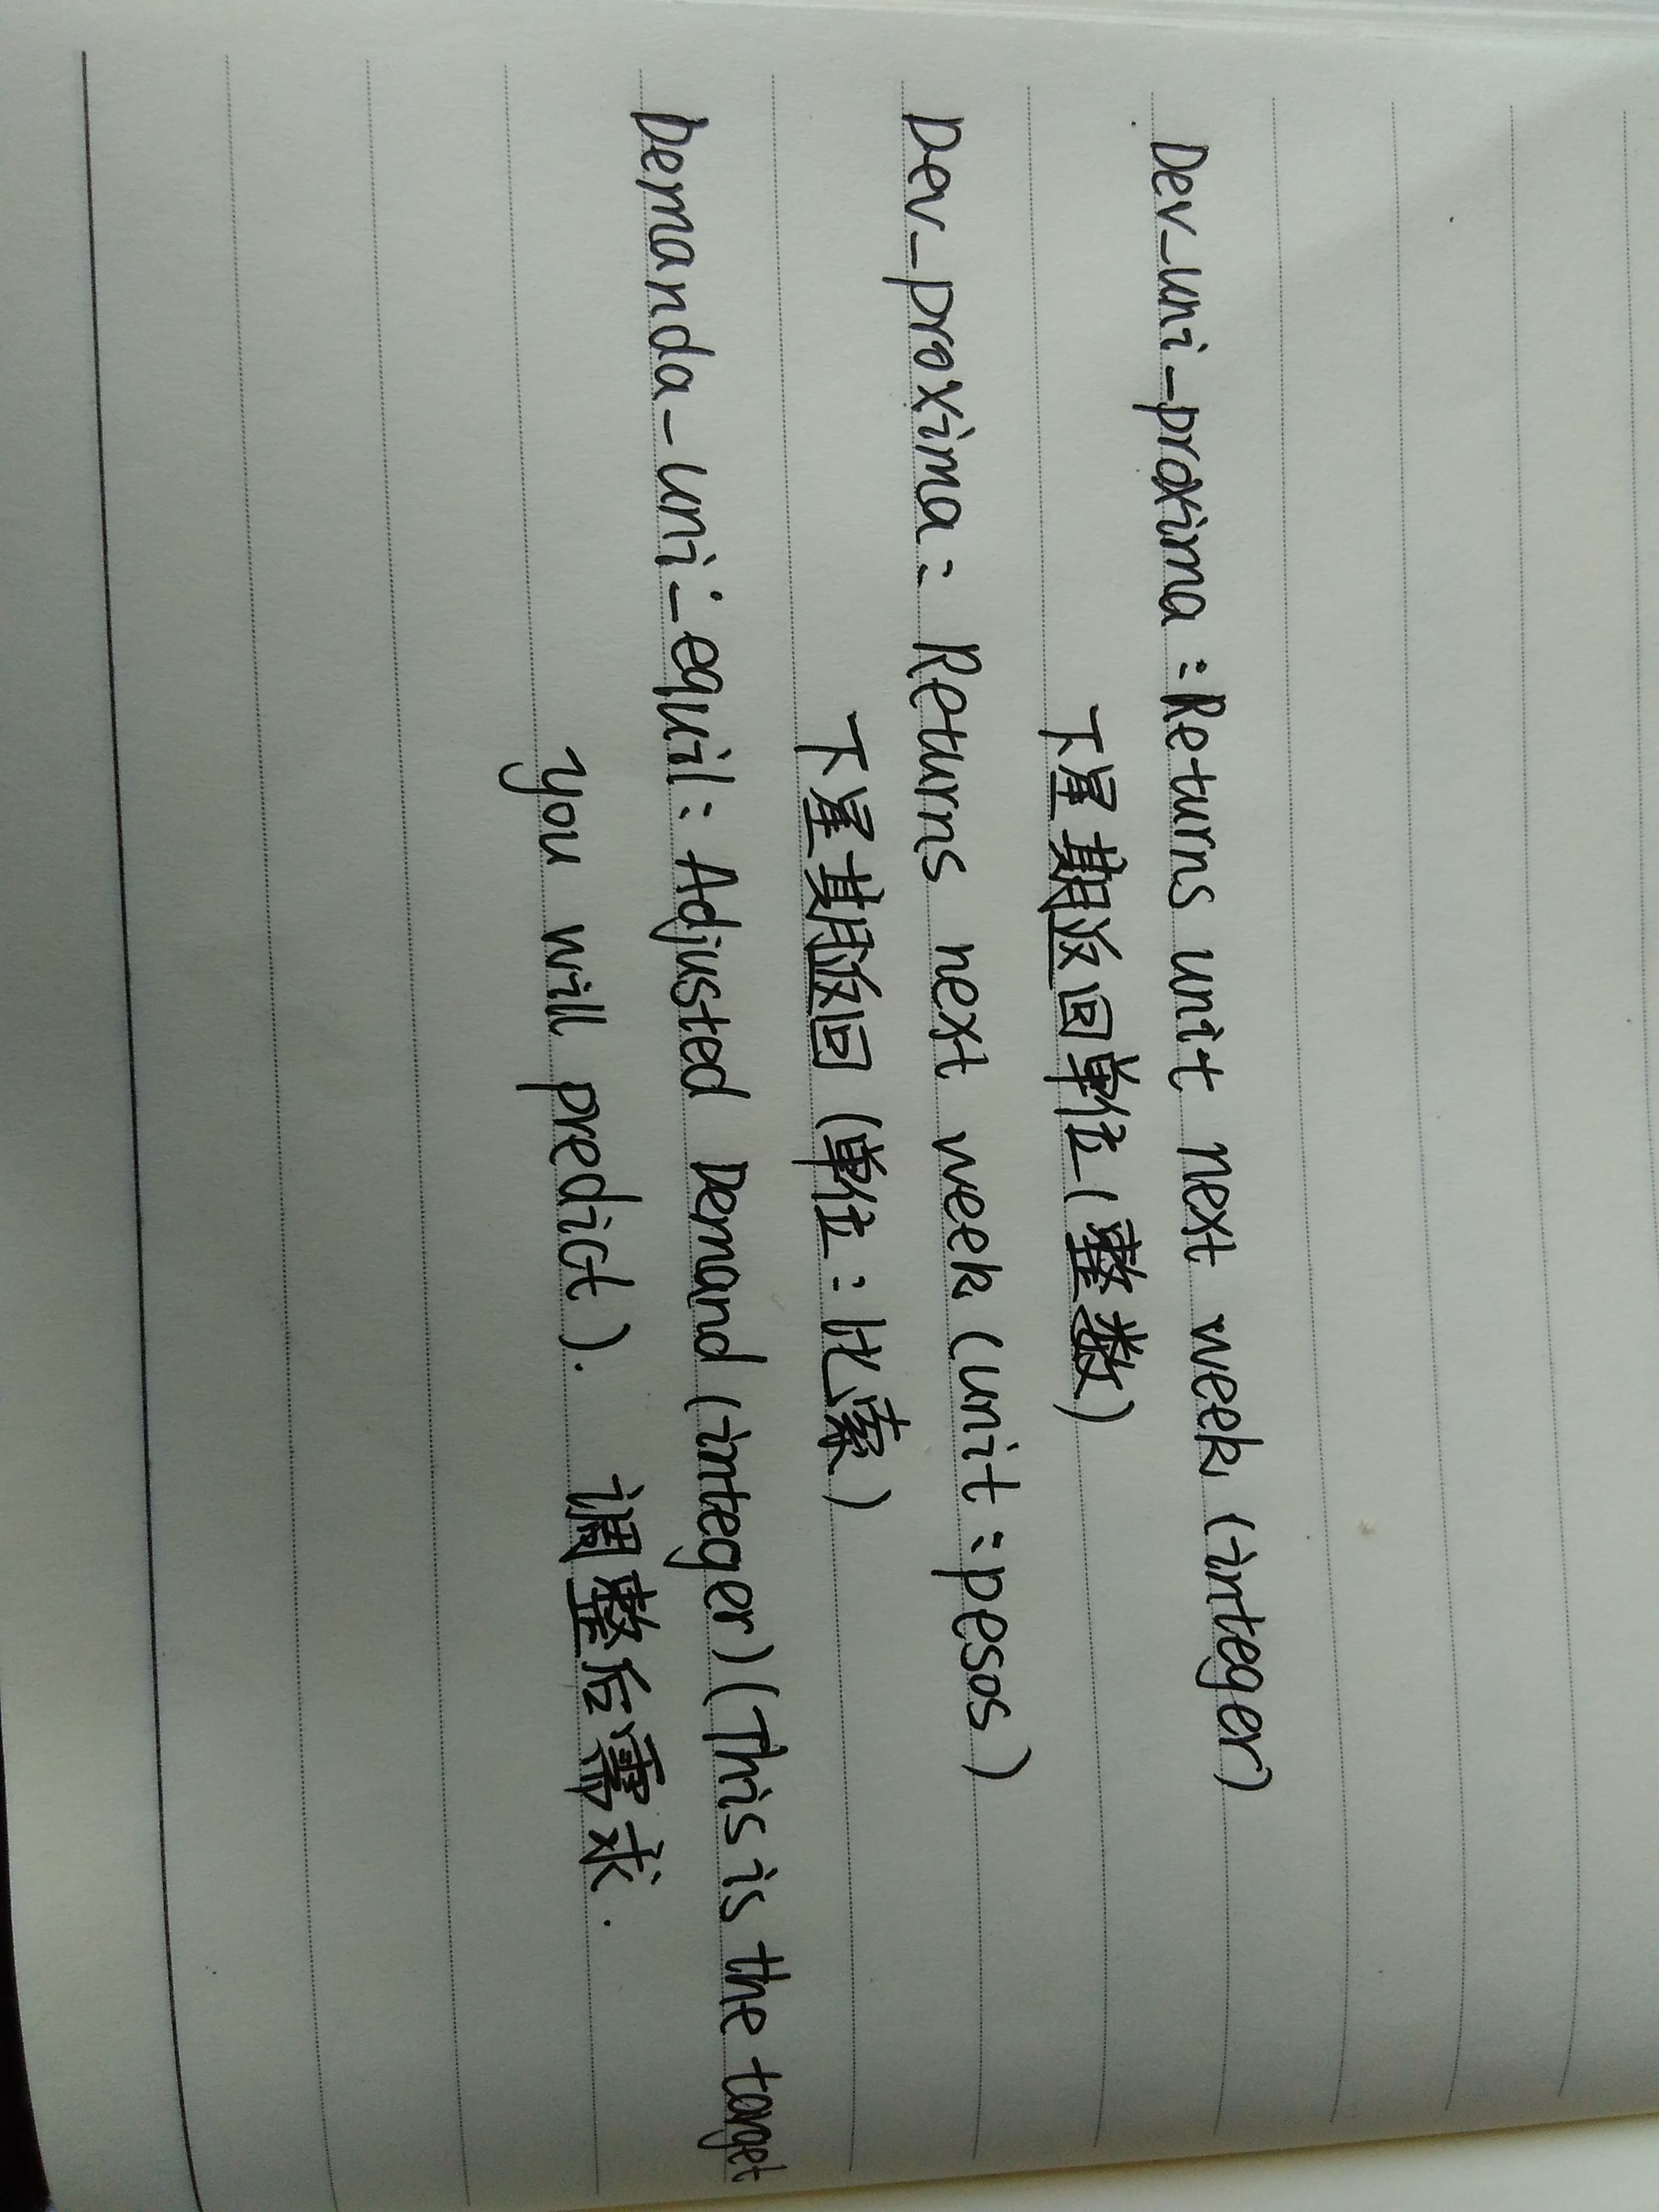 Dev_uni_proxima : Returns unit next week (integer)
下星期返回单位(整数)
Dev_proxima : Returns next week (unit : pesos)
下星期返回 (单位 : 比索)
Demanda_uni_equil : Adjusted Demand (integer) (This is the target
you will predict). 调整后需求.